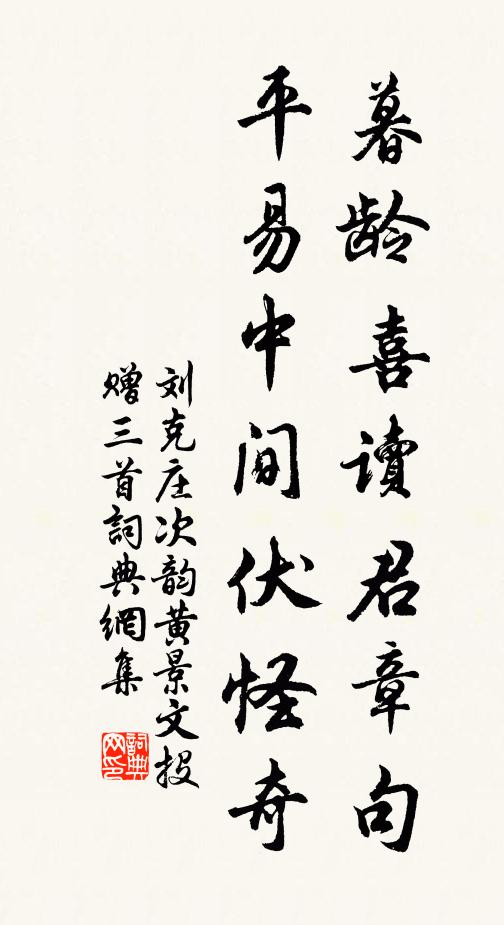 暮龄喜讀君章句
平易中间伏怪奇
刘克庄次韵黄景文投
赠三首詞典網集
詞典网印